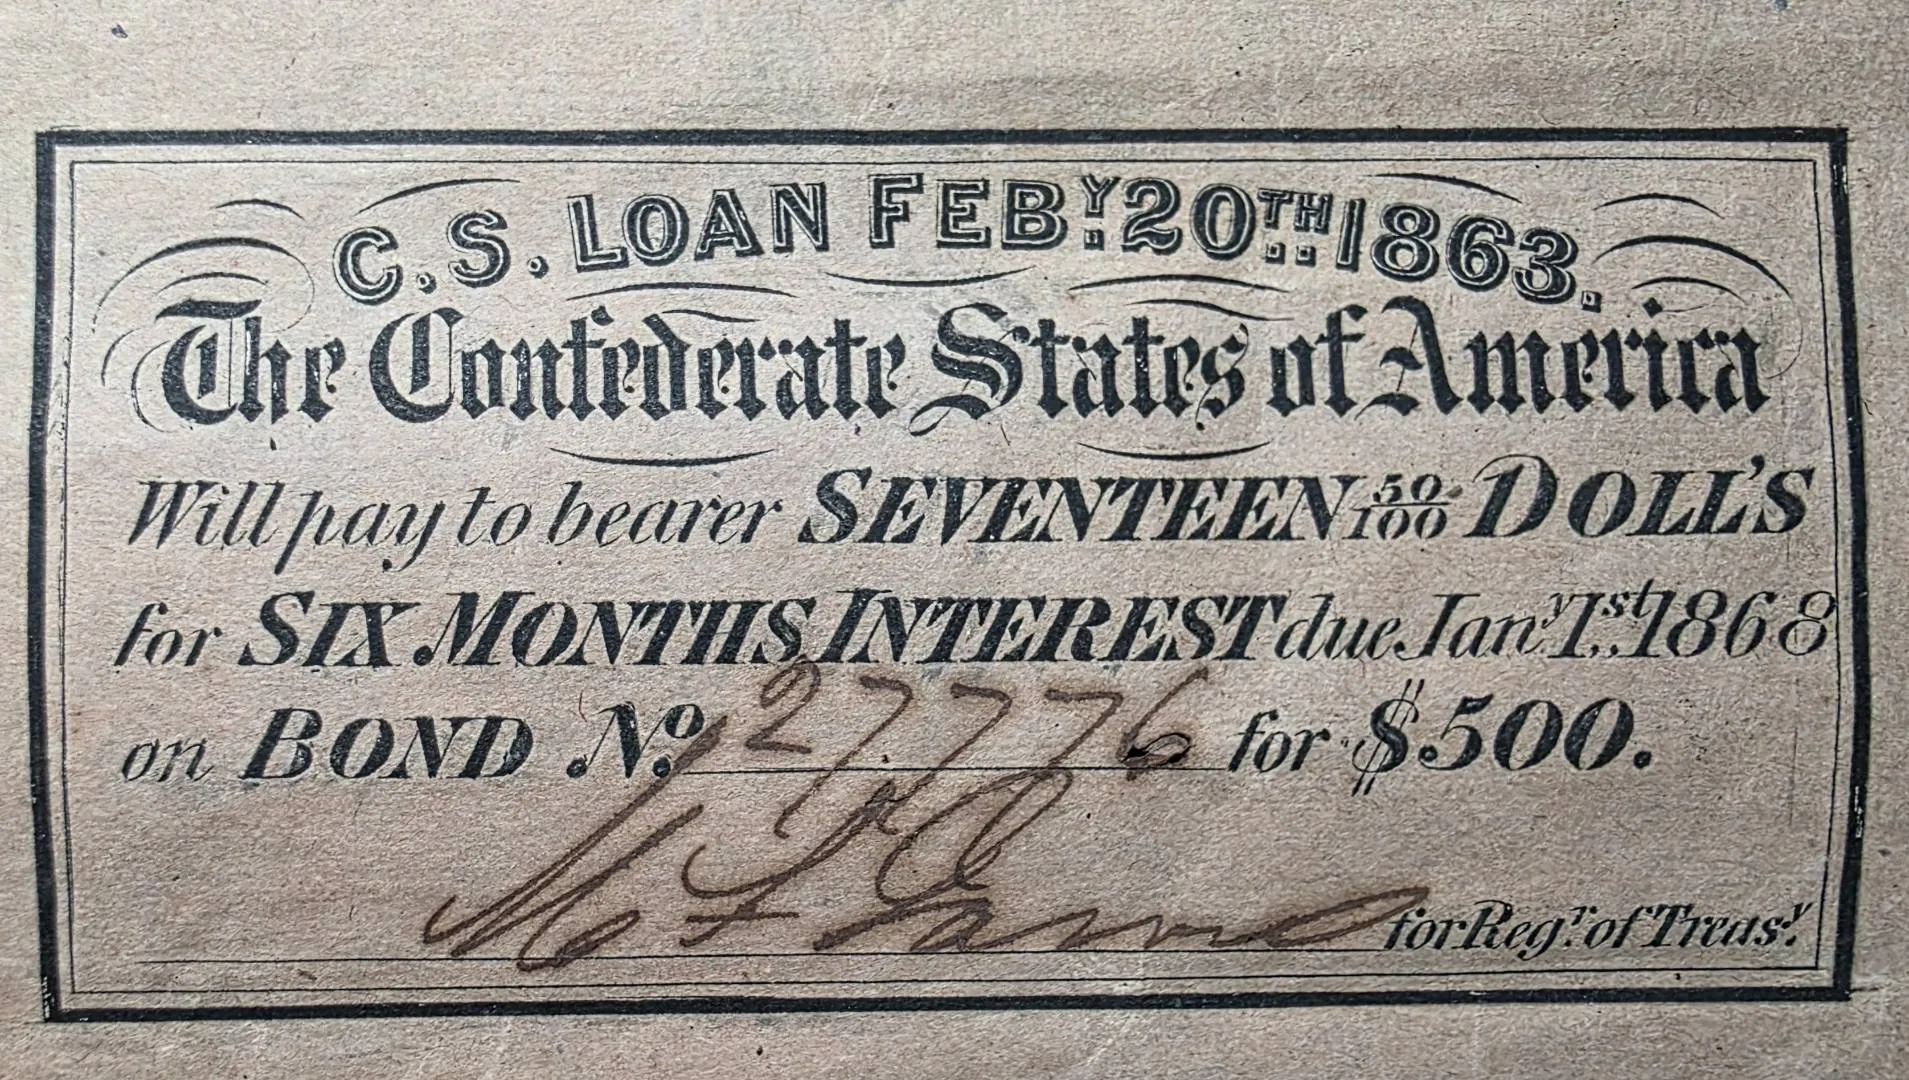 C. S. LOAN FEBY. 20TH. 1863.
The Confederate States of America
Will pay to bearer SEVENTEEN 50/100 DOLL'S
for SIX MONTHS INTEREST due Jany. 1st. 1868
on BOND No. 27776 for $500.
for Regr. of Treasy.